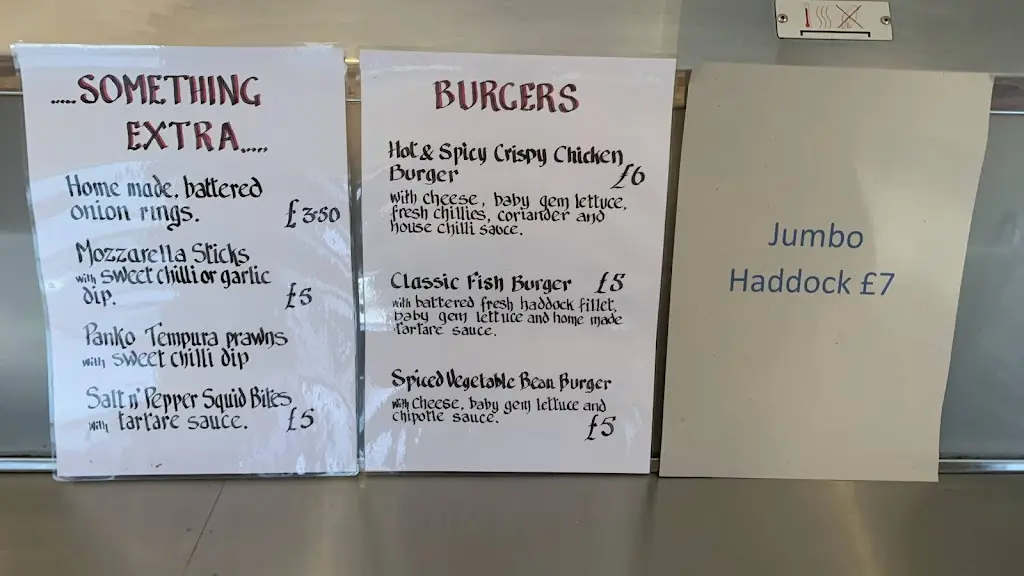 .....SOMETHING
EXTRA.....
Home made, battered
onion rings.
£3.50
Mozzarella Sticks
with sweet chilli or garlic
dip.
£5
Panko Tempura prawns
with sweet chilli dip
Salt n' Pepper Squid Bites
with tartare sauce.
£5
BURGERS
Hot & Spicy Crispy Chicken
Burger
£6
with cheese, baby gem lettuce,
fresh chillies, coriander and
house chilli sauce.
Classic Fish Burger £5
with battered fresh haddock fillet,
baby gem lettuce and home made
tartare sauce.
Spiced Vegetable Bean Burger
with cheese, baby gem lettuce and
chipotle sauce.
£5
Jumbo
Haddock £7